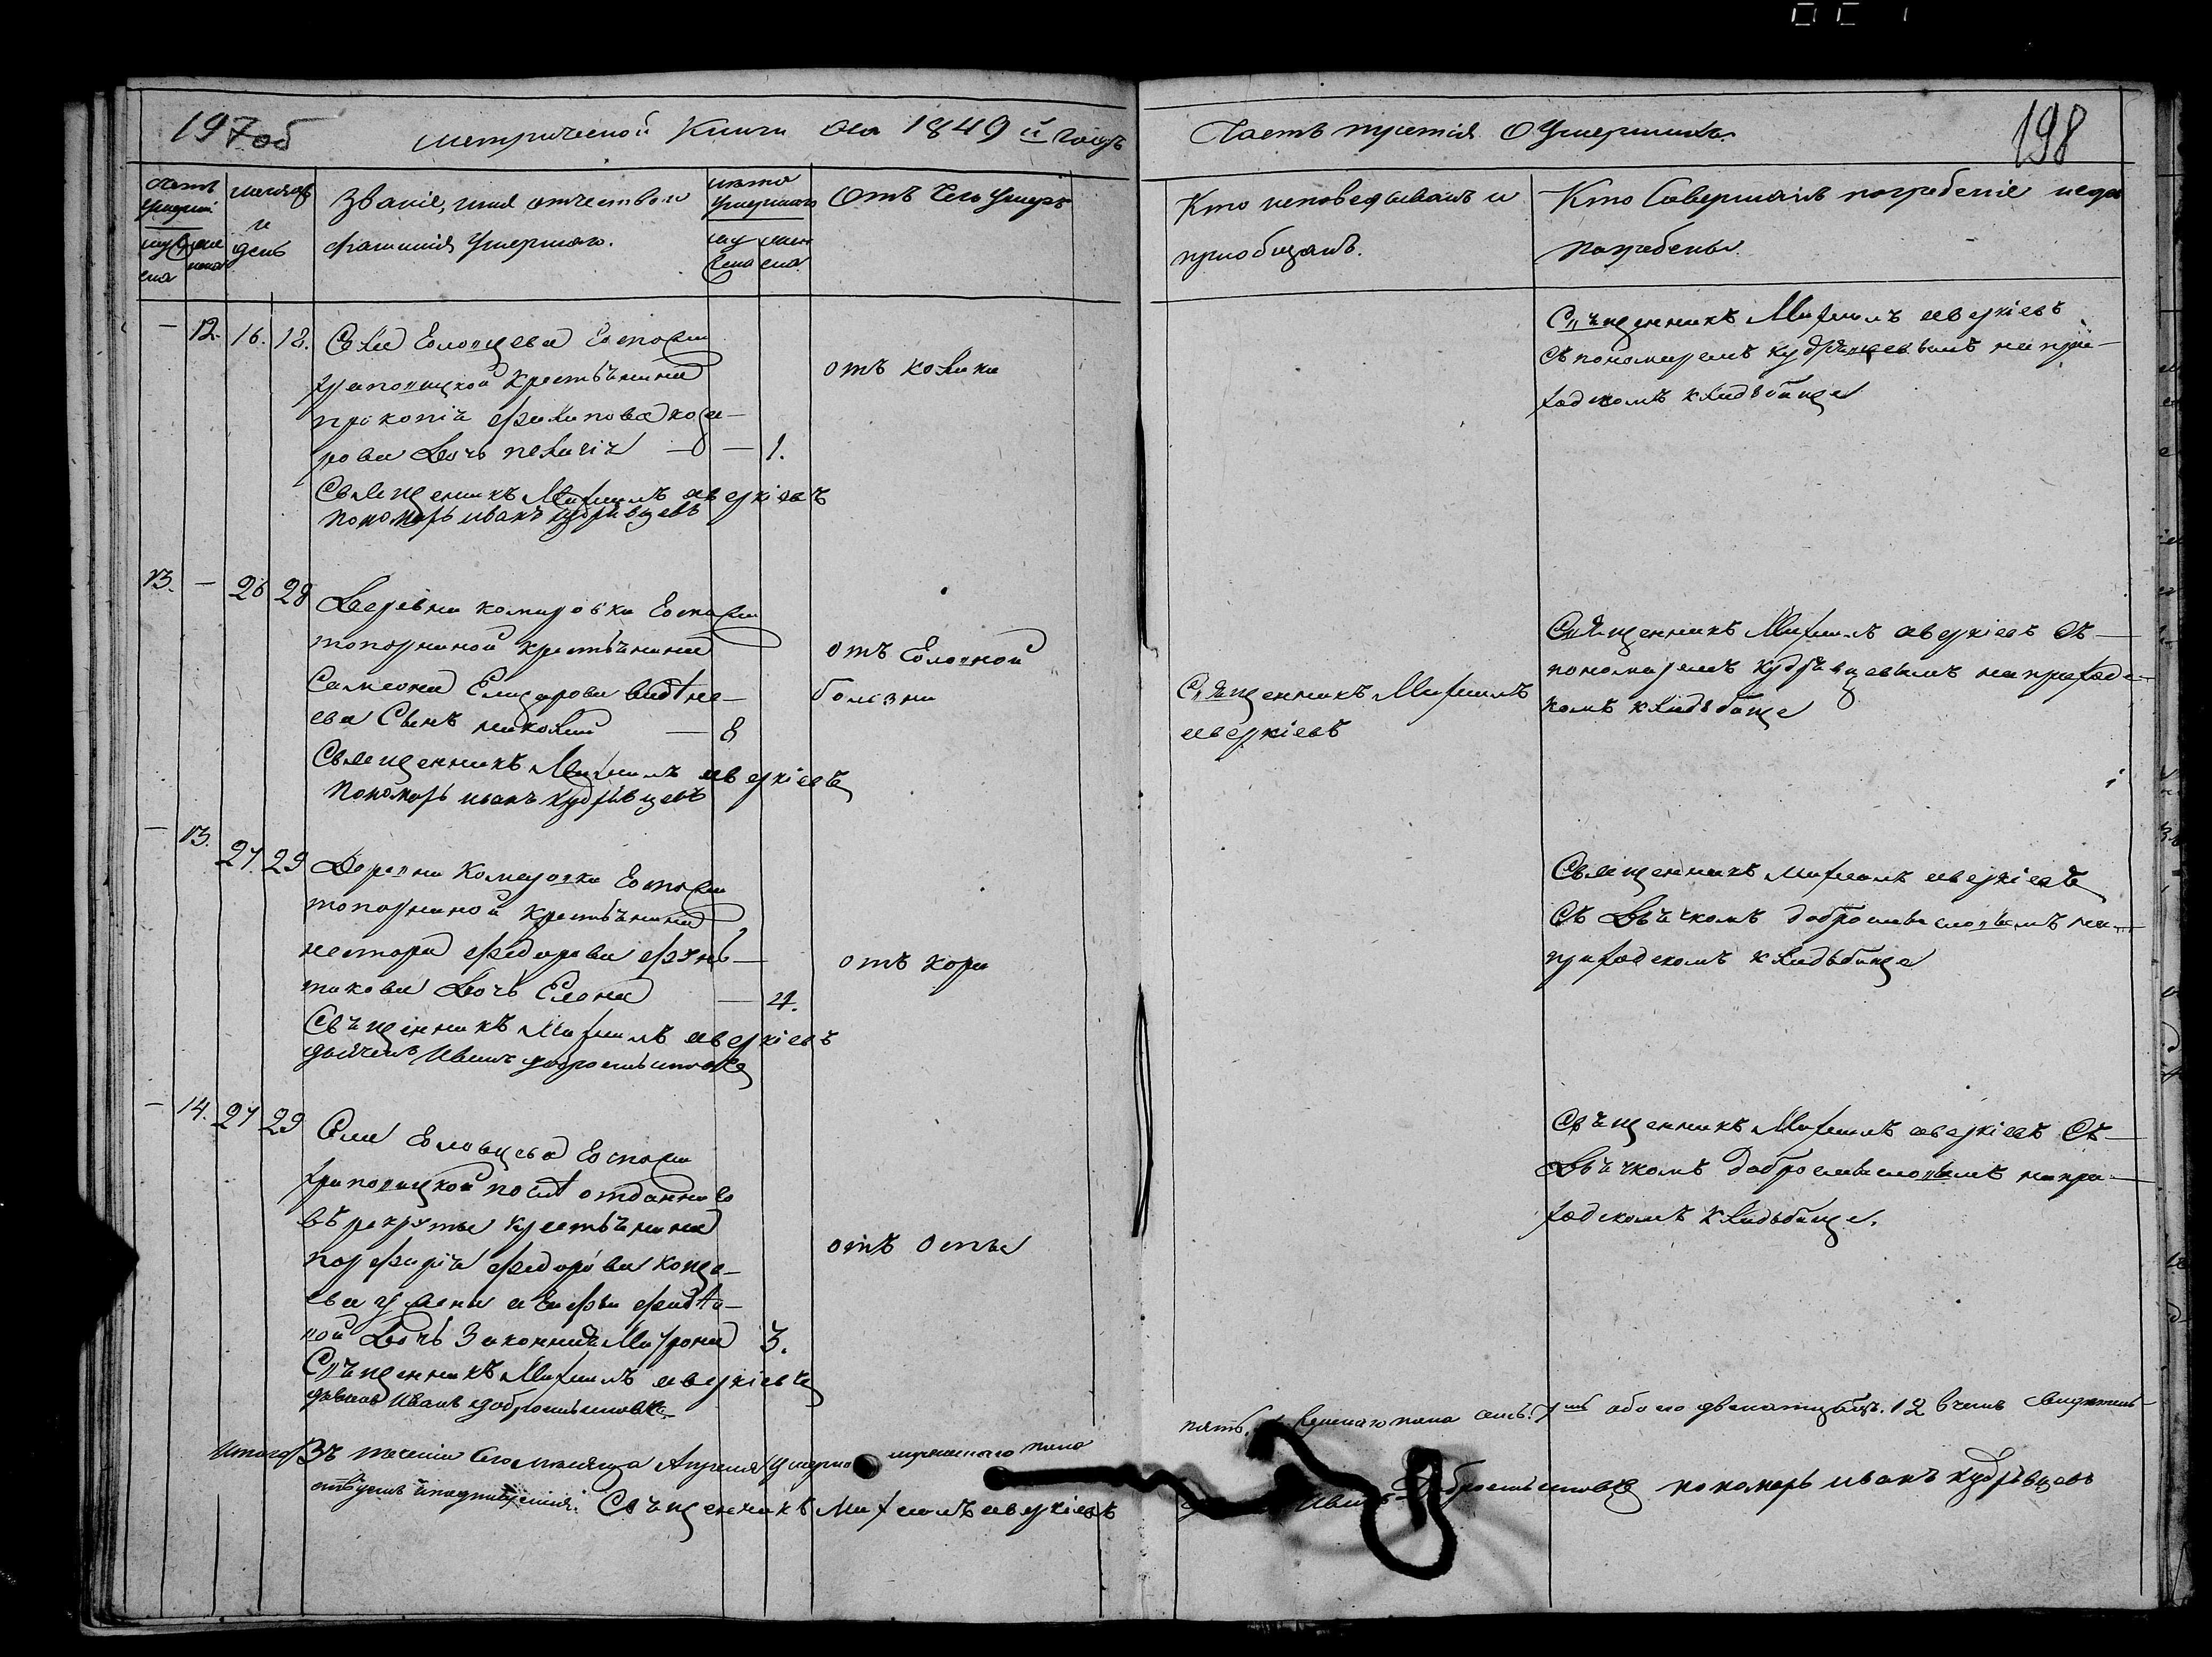 197об
метрической Книги на 1849й годъ
Часть третія О Умершихъ.
198
счетъ умерши
муже
ска
жен
ска
месяцъ
и
день
Званіе, имя отчество и
фамилія Умершаго.
лѣта
умершаго
му
ска
жен
ска
Отъ чего умеръ
Кто исповедывалъ и
пріобщалъ.
Кто Совершалъ погребеніе и гдѣ
погребены.
— 12. 16. 18. Села Головцева Госпожи
Храповицкой крестьянина
прокопія филипова
рова Дочь пелагія — — 1.
Священникъ Михаилъ аверкіевъ
пономарь иванъ кудрявцевъ
отъ колики
Священникъ Михаилъ аверкіевъ
съ пономаремъ кудрявцевымъ на при-
ходскомъ кладбище
13. — 26 28 Деревни комаровки Госпожи
топорниной крестьянина
Симеона Елизарова
ева Сынъ николай — 8
Священникъ Михаилъ аверкіевъ
Пономарь иванъ кудрявцевъ
отъ Головной
болезни
Священникъ Михаилъ
аверкіевъ
Священникъ Михаилъ аверкіевъ Съ
пономаремъ кудрявцевымъ на приход-
скомъ кладбище
— 13. 27. 29 Деревни Комаровки Госпожи
топорниной крестьянина
нестора федорова
тикова Дочь Елена — 4.
Священникъ Михаилъ аверкіевъ
дьячекъ Иванъ добромысловъ
отъ кори
Священникъ михаилъ аверкіевъ
Съ Дьячкомъ добромысловымъ на
приходскомъ кладбище
— 14. 27 29 Села Головцева Госпожи
Храповицкой после отданнаго
въ рекруты крестьянина
порфирія федорова
ева у жены
ной Дочь Законная Матрона 3.
Священникъ Михаилъ аверкіевъ
дьячекъ Иванъ добромысловъ
отъ оспы
Священникъ Михаилъ аверкіевъ Съ
Дьячкомъ добромысловымъ на при-
ходскомъ кладбище.
Итого Въ теченіи Сего месяца Апреля умерло мужескаго пола
пять. женскаго пола семь. 7мь обоего двенатцать. 12 в чемъ Свидетель-
ствуемъ и подписуемся. Священникъ Михаилъ аверкіевъ
Иванъ добромысловъ пономарь иванъ кудрявцевъ